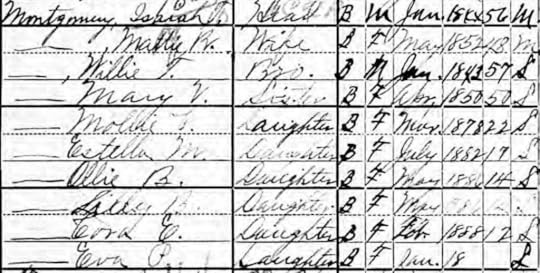 Montgomery, Isaiah T. Head B M Jan. 1844 56 M
—— , Mattie R. Wife B F May 1852 48 M
—— , Willie T. Bro. B M Jan. 1843 57 S
—— Mary V. Sister B F Apr. 1850 50 S
—— Mollie F. Daughter B F Mar. 1878 22 S
—— Estella M. Daughter B F July 1882 17 S
—— Ollie B. Daughter B F May 1886 14 S
—— Daughter B F May
—— E. Daughter B F Feb. 1888 12 S
—— Eva P. Daughter B F Jan. 18 S